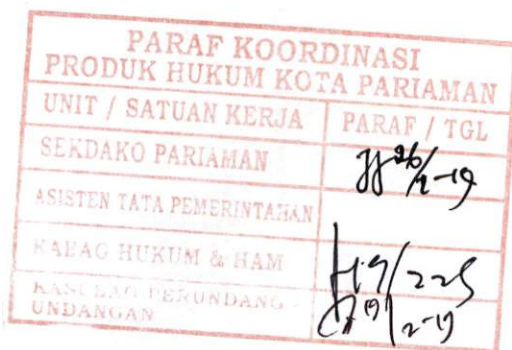 PARAF KOORDINASI
PRODUK HUKUM KOTA PARIAMAN
UNIT / SATUAN KERJA PARAF / TGL
SEKDAKO PARIAMAN 26/2-19
ASISTEN TATA PEMERINTAHAN
KABAG HUKUM & HAM
KASUBAG PERUNDANG -
UNDANGAN 19/2-19